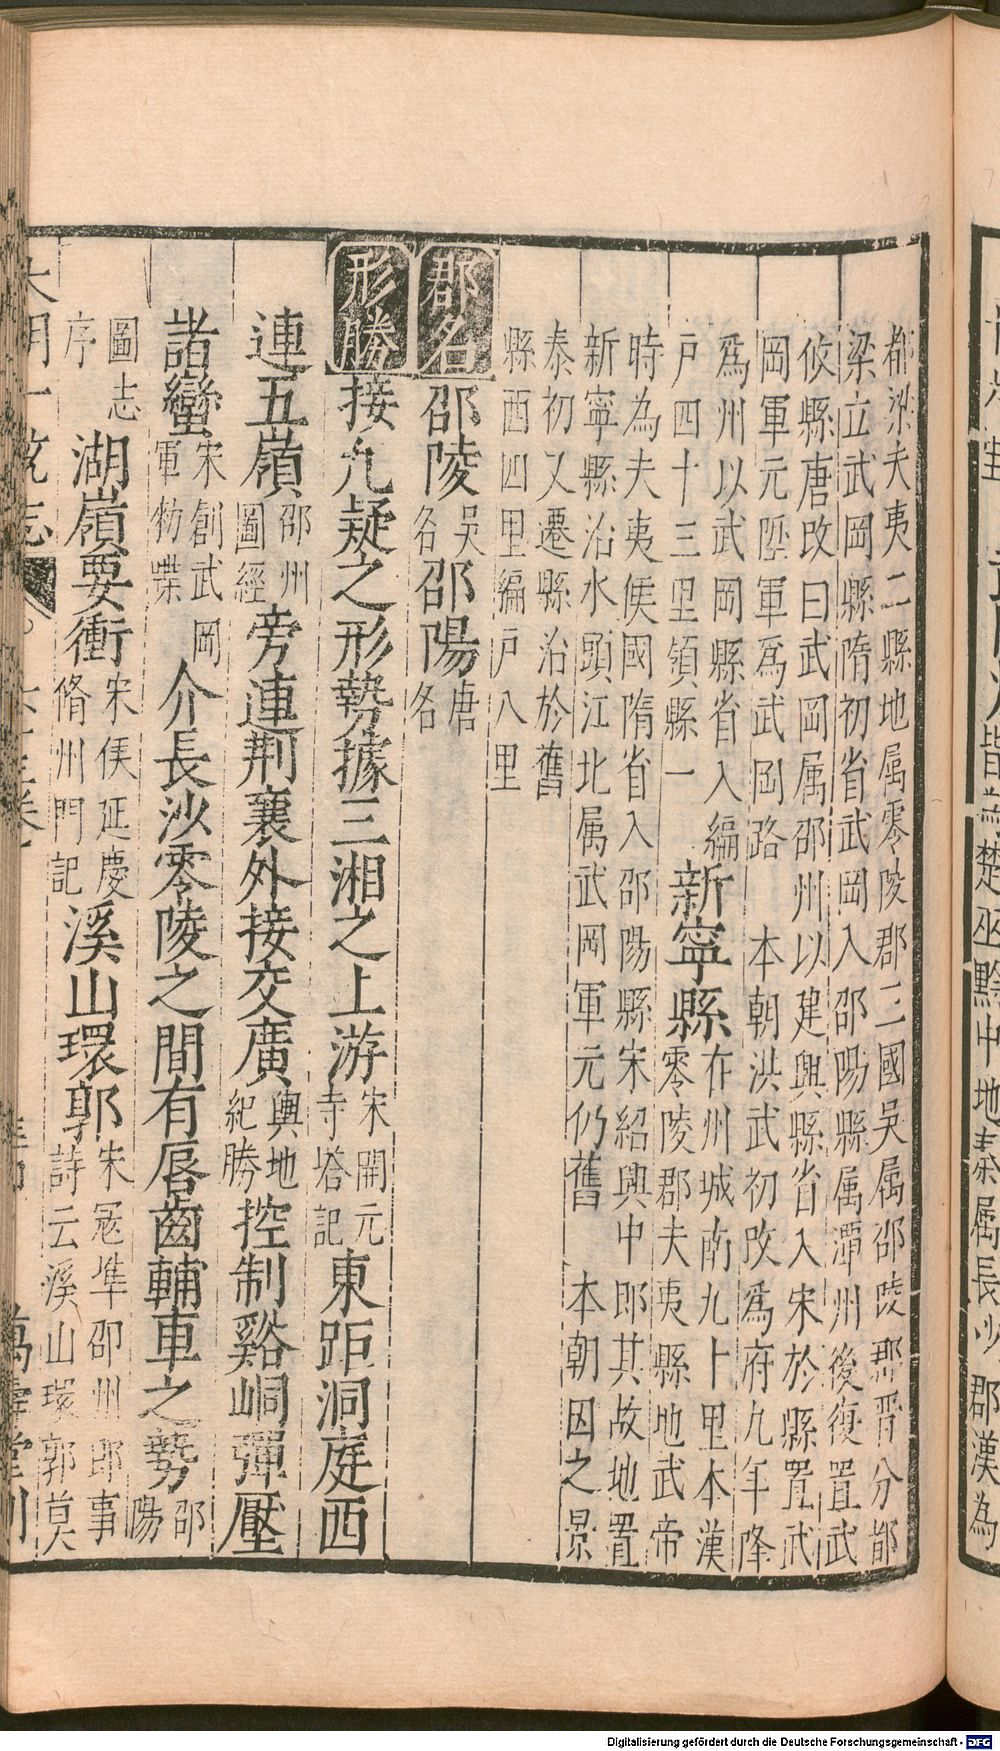 皆為楚巫黔中地秦属長沙郡漢為
都梁夫夷二縣地属零陵郡三國吳属邵陵郡晉分都
梁立武岡縣隋初省武岡入邵陽縣属潭州後復置武
攸縣唐改曰武岡属邵州以建興縣省入宋於縣置武
岡軍元陞軍為武岡路 本朝洪武初改為府九年降
為州以武岡縣省入編
户四十三里領縣一
新寧縣
在州城南九十里本漢
零陵郡夫夷縣地武帝
時為夫夷侯國隋省入邵陽縣宋紹興中即其故地置
新寧縣治水頭江北属武岡軍元仍舊 本朝因之景
泰初又遷縣治於舊
縣西四里編户八里
郡名 邵陵 吳名 邵陽 唐名
形勝 接九疑之形勢據三湘之上游 宋開元寺塔記 東距洞庭西
連五嶺 邵州圖經 旁連荆襄外接交廣 輿地紀勝 控制谿峒彈壓
諸蠻 宋創武岡軍勑牒 介長沙零陵之間有唇齒輔車之勢 邵陽
圖志序 湖嶺要衝 宋侯延慶脩州門記 溪山環郭 宋冦準邵州郎事詩云溪山環郭莫
大明一統志 萬壽堂刊
Digitalisierung gefördert durch die Deutsche Forschungsgemeinschaft - DFG